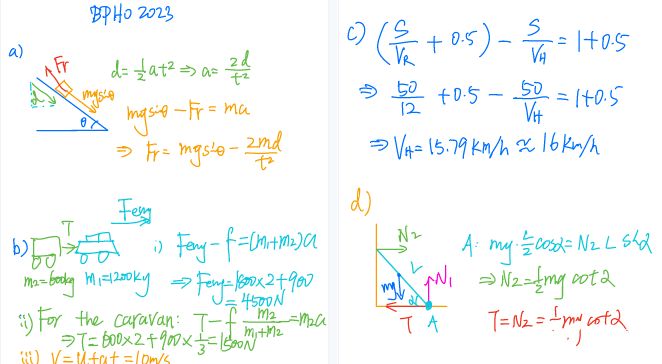 BPHO 2023
a)
Fr
mgsinθ
θ
d
d = 1/2 at² ⇒ a = 2d/t²
mgsinθ - Fr = ma
⇒ Fr = mgsinθ - 2md/t²
b)
T
Feng
m₂=600kg m₁=1200kg
i) Feng - f = (m₁+m₂)a
⇒ Feng = 1800×2+900
= 4500N
ii) For the caravan: T - f m₂/(m₁+m₂) = m₂a
⇒ T = 600×2 + 900 × 1/3 = 1500N
iii) V = u + at = 10m/s
c) (S/V_R + 0.5) - S/V_H = 1+0.5
⇒ 50/12 + 0.5 - 50/V_H = 1+0.5
⇒ V_H = 15.79 km/h ≈ 16km/h
d)
N₂
L
mg
N₁
α
T
A
A: mg·L/2 cosα = N₂ L sinα
⇒ N₂ = 1/2 mg cotα
T = N₂ = 1/2 mg cotα